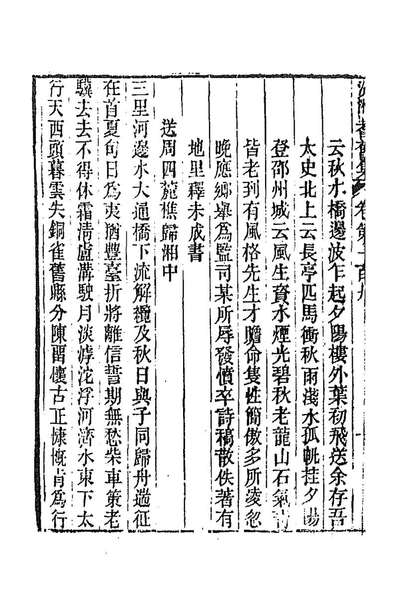 耆舊集 卷第一百九
云秋水橋邊波乍起夕陽樓外葉初飛送余存吾
太史北上云長亭匹馬衝秋雨淺水孤帆挂夕陽
登邵州城云風生資水煙光碧秋老龍山石氣
皆老到有風格先生才贍命隻性簡傲多所淩忽
晚應鄉舉為監司某所辱發憤卒詩稿散佚著有
地里釋未成書
送周四麓樵歸湘中
三里河邊水大通橋下流解纜及秋日與子同歸舟遄征
在首夏旬日為夷猶豐臺折將離信誓期無愁柴車策老
驥去去不得休霜淸盧溝駛月淡滹沱浮河濟水東下太
行天西頭暮雲失銅雀舊縣分陳畱懷古正慷慨肯為行